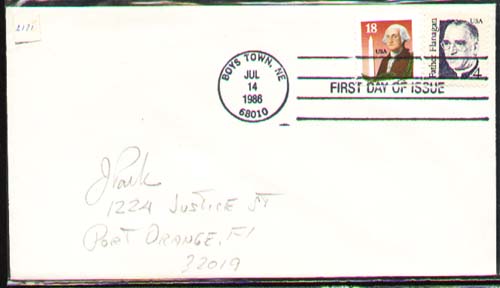 2171
18
USA
Father Flanagan
USA
4
BOYS TOWN, NE
JUL
14
1986
68010
FIRST DAY OF ISSUE
J Park
1224 Justice St
Port Orange, Fl
32019